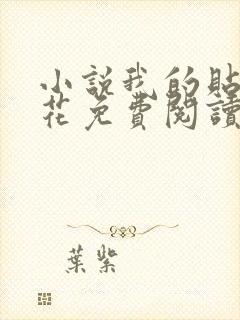 小説我的貼
花免費閱讀
葉紫